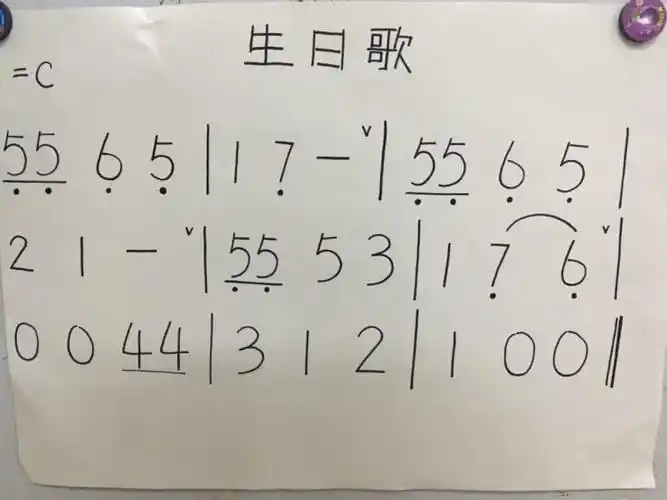 生日歌
=C
55 6 5 | 1 7 - ∨ | 55 6 5 |
2 1 - ∨ | 55 5 3 | 1 7 6 ∨ |
0 0 44 | 3 1 2 | 1 0 0 ‖